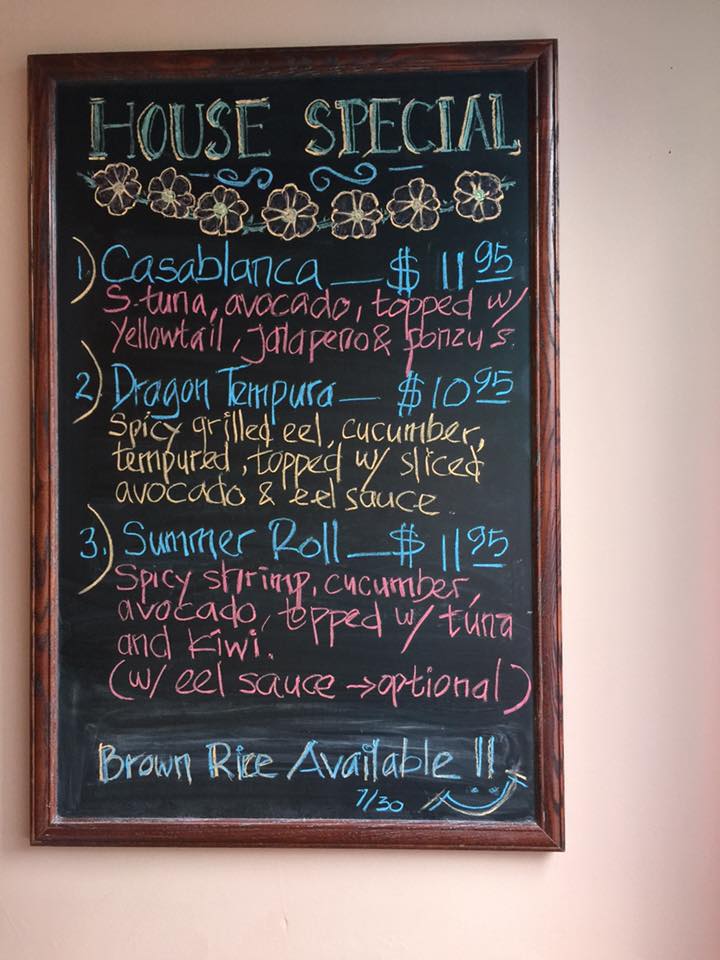 HOUSE SPECIAL
1.) Casablanca — $ 11 95
S. tuna, avocado, topped w/
Yellowtail, jalapeno & ponzu s.
2.) Dragon Tempura — $10 95
Spicy grilled eel, cucumber,
tempured, topped w/ sliced
avocado & eel sauce.
3.) Summer Roll — $ 11 95
Spicy shrimp, cucumber,
avocado, topped w/ tuna
and kiwi.
(w/ eel sauce → optional)
Brown Rice Available !!
7/30